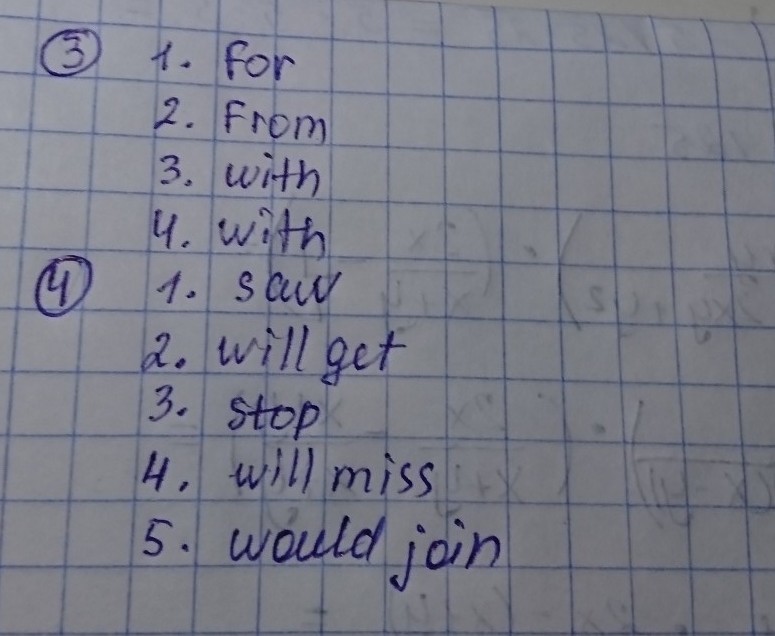 ③ 1. for
2. From
3. with
4. with
④ 1. saw
2. will get
3. stop
4. will miss
5. would join